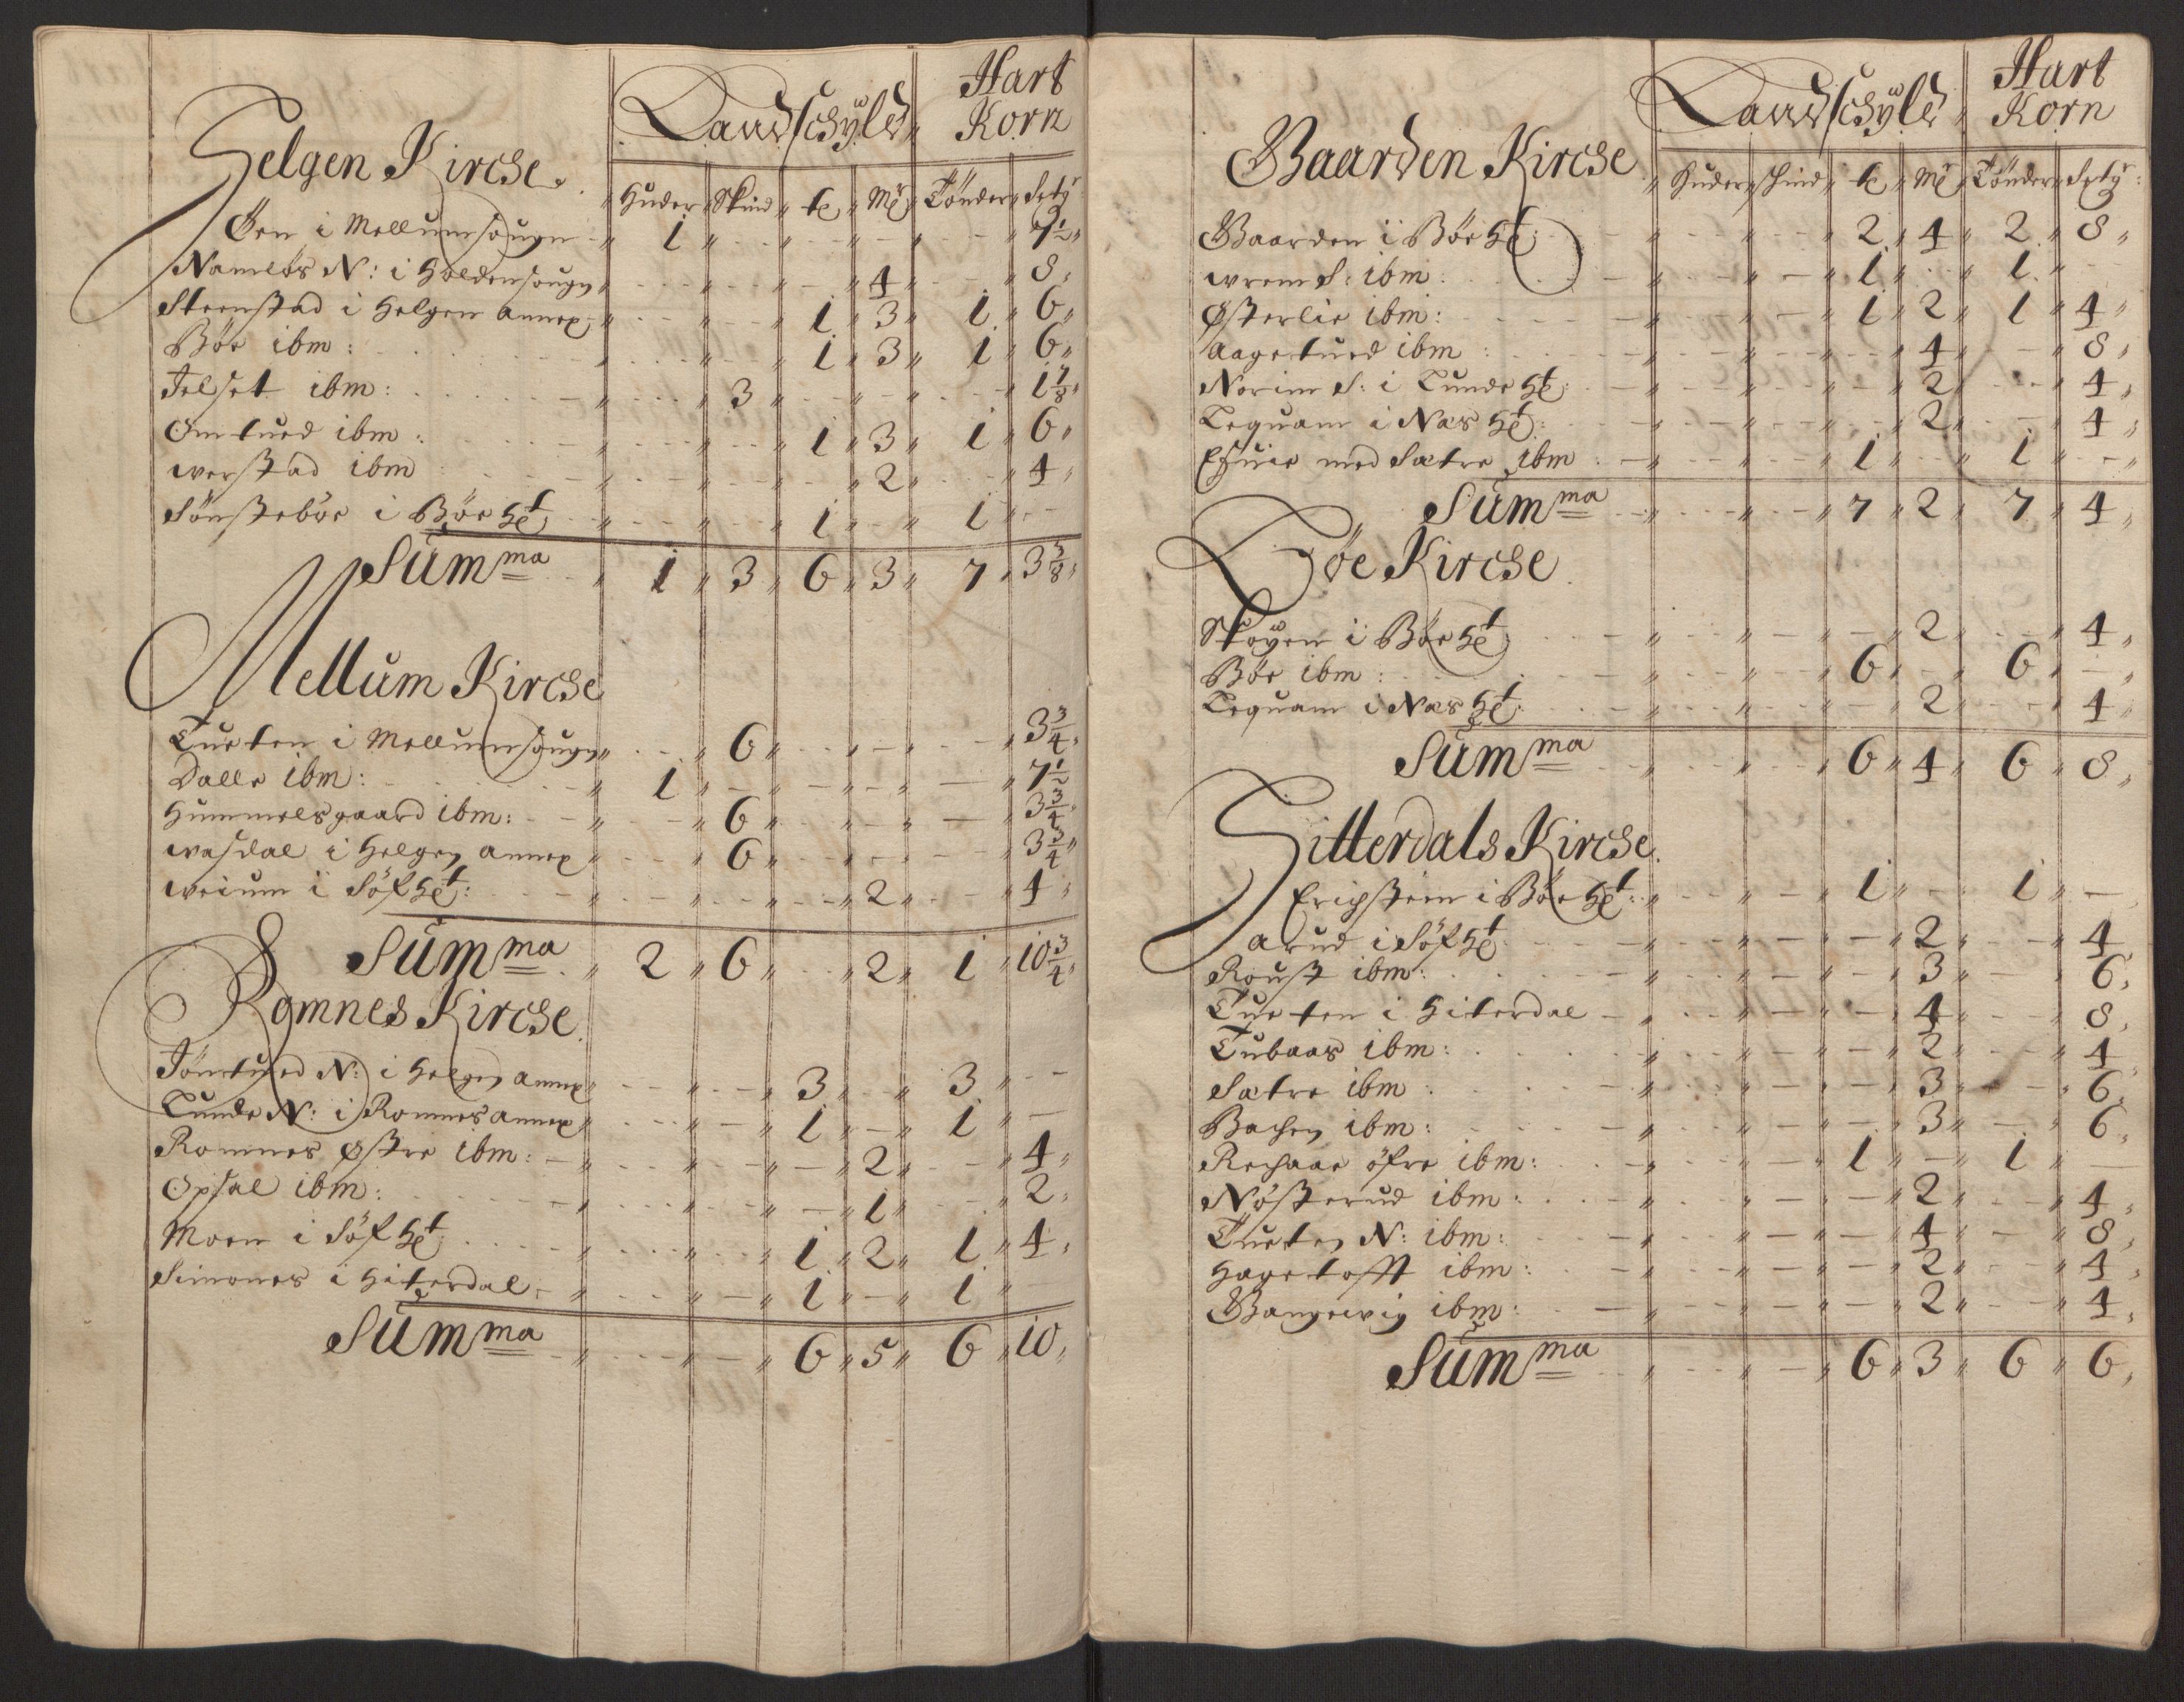 Landschÿld Hart Korn
Helgen Kircke.
Huder Skind ℔ Mķ Tönder Setÿ
Øen i Mellumsougn 1 7½
Namløs N: i Holdensougn 4 8
Steenstad i Helgen annex 1 3 1 6
Böe ibm: 1 3 1 6
Jelset ibm: 3 1⅞
Omtued ibm: 1 3 1 6
werstad ibm 2 4
Sönsteböe i Böe Hꝭt 1 1
Summma 1 3 6 3 7 3⅜
Mellum Kircke
Tueten i Mellumsougn 6 3¾
Dalle ibm: 1 7½
Hummelsgaard ibm: 6 3¾
wasdal i Helgen annex 6 3¾
weium i Söf Hꝭt: 2 4
Summma 2 6 2 1 10¾
Romnes Kircke.
Töntued N: i Helgen annex 3 3
Lunde N: i Romnes annex 1 1
Romnes østre ibm: 2 4
Opsal ibm: 1 2
Moen i Söf Hꝭt 1 2 1 4
Simones i Hiterdal 1 1
Summma 6 5 6 10
Landschÿld Hart Korn
Baarden Kircke
Huder skind ℔ Mķ Tönder Setÿ:
Baarden i Böe Hꝭt: 2 4 2 8
wrem S: ibm: 1 1
Østerlie ibm: 1 2 1 4
Aagetued ibm: 4 8
Norim S: i Lunde Hꝭt: 2 4
Lequam i Næs Hꝭt: 2 4
med Sætre ibm: 1 1
Summma 7 2 7 4
Böe Kircke.
Skoÿen i Böe Hꝭt 2 4
Böe ibm: 6 6
Lequam i Næs Hꝭt: 2 4
Summma 6 4 6 8
Hitterdals Kircke.
Erichstein i Böe Hꝭt: 1 1
Arud i Söf Hꝭt: 2 4
Roust ibm: 3 6
Tueten i Hiterdal 4 8
Tubaas ibm: 2 4
Sætre ibm: 3 6
Bachen ibm: 3 6
Rechaae öfre ibm: 1 1
Nösterud ibm: 2 4
Tueten N: ibm: 4 8
Hagetofft ibm: 2 4
Bangewig ibm: 2 4
Summma 6 3 6 6